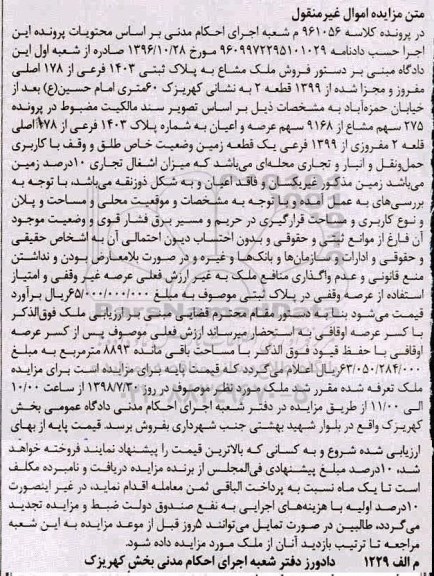 متن مزایده اموال غیرمنقول
در پرونده کلاسه 961056 م شعبه اجرای احکام مدنی بر اساس محتویات پرونده این
اجرا حسب دادنامه 9609972295101029 مورخ 1396/10/28 صادره از شعبه اول این
دادگاه مبنی بر دستور فروش ملک مشاع به پلاک ثبتی 1403 فرعی از 178 اصلی
مفروز و مجزا شده از 1399 قطعه 2 به نشانی کهریزک 60متری امام حسین(ع) بعد از
خیابان حمزه‌آباد به مشخصات ذیل بر اساس تصویر سند مالکیت مضبوط در پرونده
275 سهم مشاع از 9168 سهم عرصه و اعیان به شماره پلاک 1403 فرعی از 178اصلی
قلعه 2 مفروزی از 1399 فرعی یک قطعه زمین وضعیت خاص طلق و وقف با کاربری
حمل‌ونقل و انبار و تجاری محله‌ای می‌باشد که میزان اشغال تجاری 10درصد زمین
می‌باشد زمین مذکور غیریکسان و فاقد اعیان و به شکل ذوزنقه می‌باشد، با توجه به
بررسی‌های به عمل آمده و با توجه به مشخصات و موقعیت محلی و مساحت و پلان
و نوع کاربری و مساحت قرارگیری در حریم و مسیر برق فشار قوی و وضعیت موجود
آن فارغ از موانع ثبتی و حقوقی و بدون احتساب دیون احتمالی آن به اشخاص حقیقی
و حقوقی و ادارات و سازمان‌ها و بانک‌ها و غیره و در صورت بلامعارض بودن و نداشتن
منع قانونی و عدم واگذاری منافع ملک به غیر ارزش فعلی عرصه غیر وقفی و امتیاز
استفاده از عرصه وقفی در پلاک ثبتی موصوف به مبلغ 65/000/000/000ریال برآورد
قیمت می‌شود بنا به دستور مقام محترم قضایی مبنی بر ارزیابی ملک فوق‌الذکر
با کسر عرصه اوقافی به استحضار می‌رساند ارزش فعلی موصوف پس از کسر عرصه
اوقافی با حفظ قیود فوق الذکر با مساحت باقی مانده 8893 مترمربع به مبلغ
63/050/284/000ریال اعلام می‌گردد که قیمت پایه برای مزایده است برای مزایده
ملک تعرفه شده مقرر شد ملک مورد نظر موصوف در روز 1398/7/30 از ساعت 10/00
الی 11/00 از طریق مزایده در دفتر شعبه اجرای احکام مدنی دادگاه عمومی بخش
کهریزک واقع در بلوار شهید بهشتی جنب شهرداری بفروش برسد. قیمت پایه از بهای
ارزیابی شده شروع و به کسانی که بالاترین قیمت را پیشنهاد نمایند فروخته خواهد
شد، 10درصد مبلغ پیشنهادی فی‌المجلس از برنده مزایده دریافت و نامبرده مکلف
است تا یک ماه نسبت به پرداخت الباقی ثمن معامله اقدام نماید، در غیر اینصورت
10درصد اولیه با هزینه‌های اجرایی به نفع صندوق دولت ضبط و مزایده تجدید
می‌گردد، طالبین در صورت تمایل می‌توانند 5روز قبل از موعد مزایده به این شعبه
مراجعه تا ترتیب بازدید آنان از ملک مورد مزایده داده شود.
م الف 1229 دادورز دفتر شعبه اجرای احکام مدنی بخش کهریزک